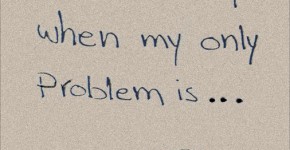 when my only
Problem is...